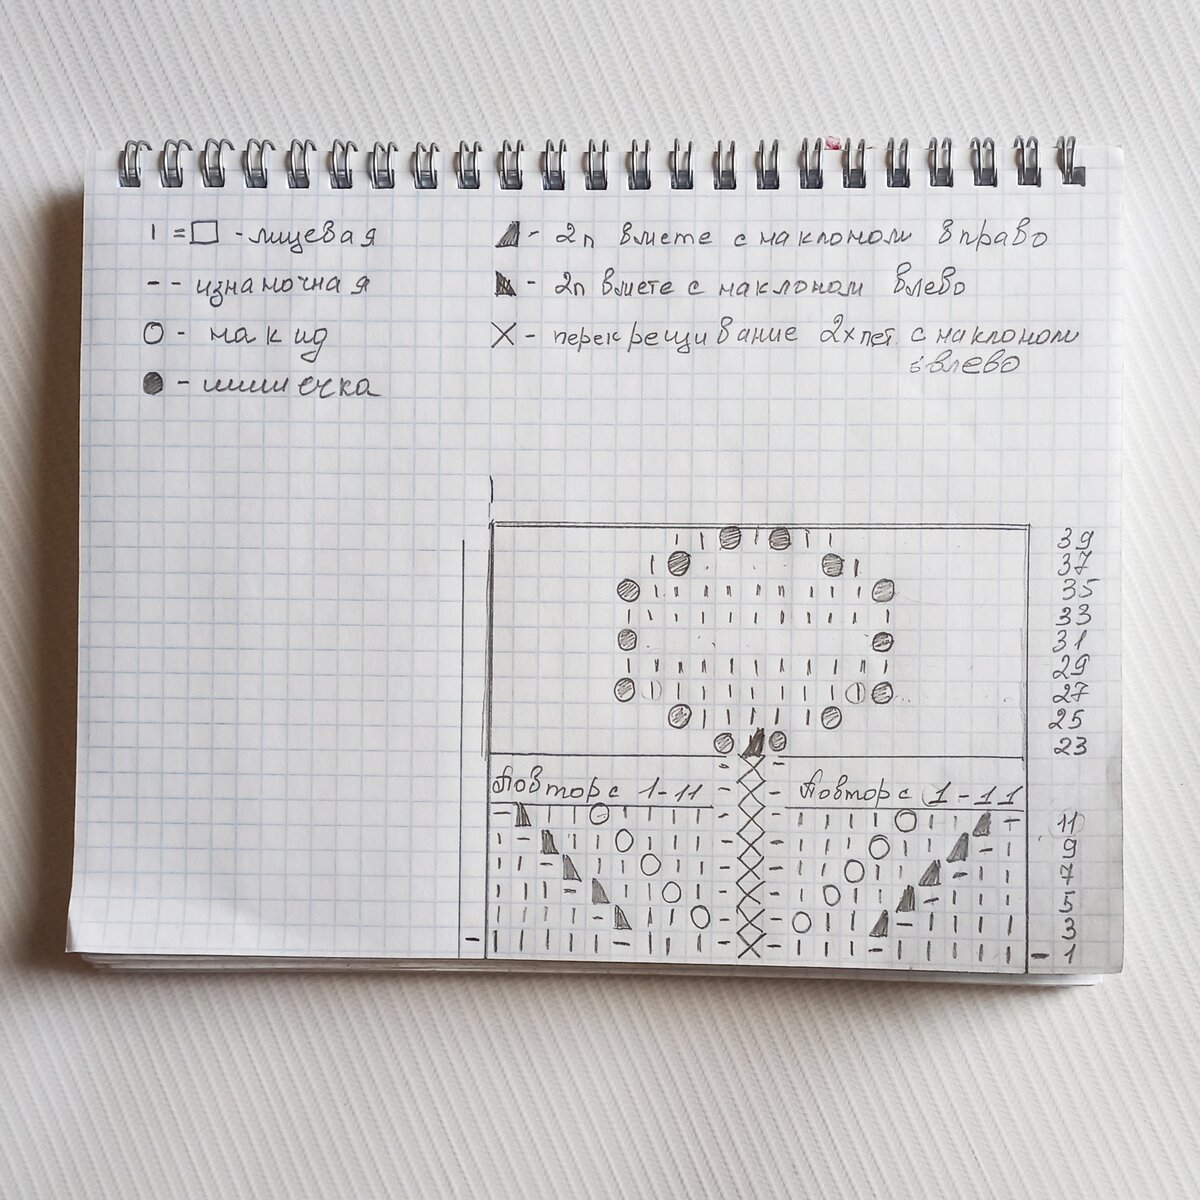 I = □ - лицевая
- - изнаночная
О - накид
● - шишечка
◢ - 2п вместе с наклоном вправо
◣ - 2п вместе с наклоном влево
X - перекрещивание 2х пет. с наклоном
влево
39
37
35
33
31
29
27
25
23
Повтор с 1-11
Повтор с 1-11
11
9
7
5
3
1